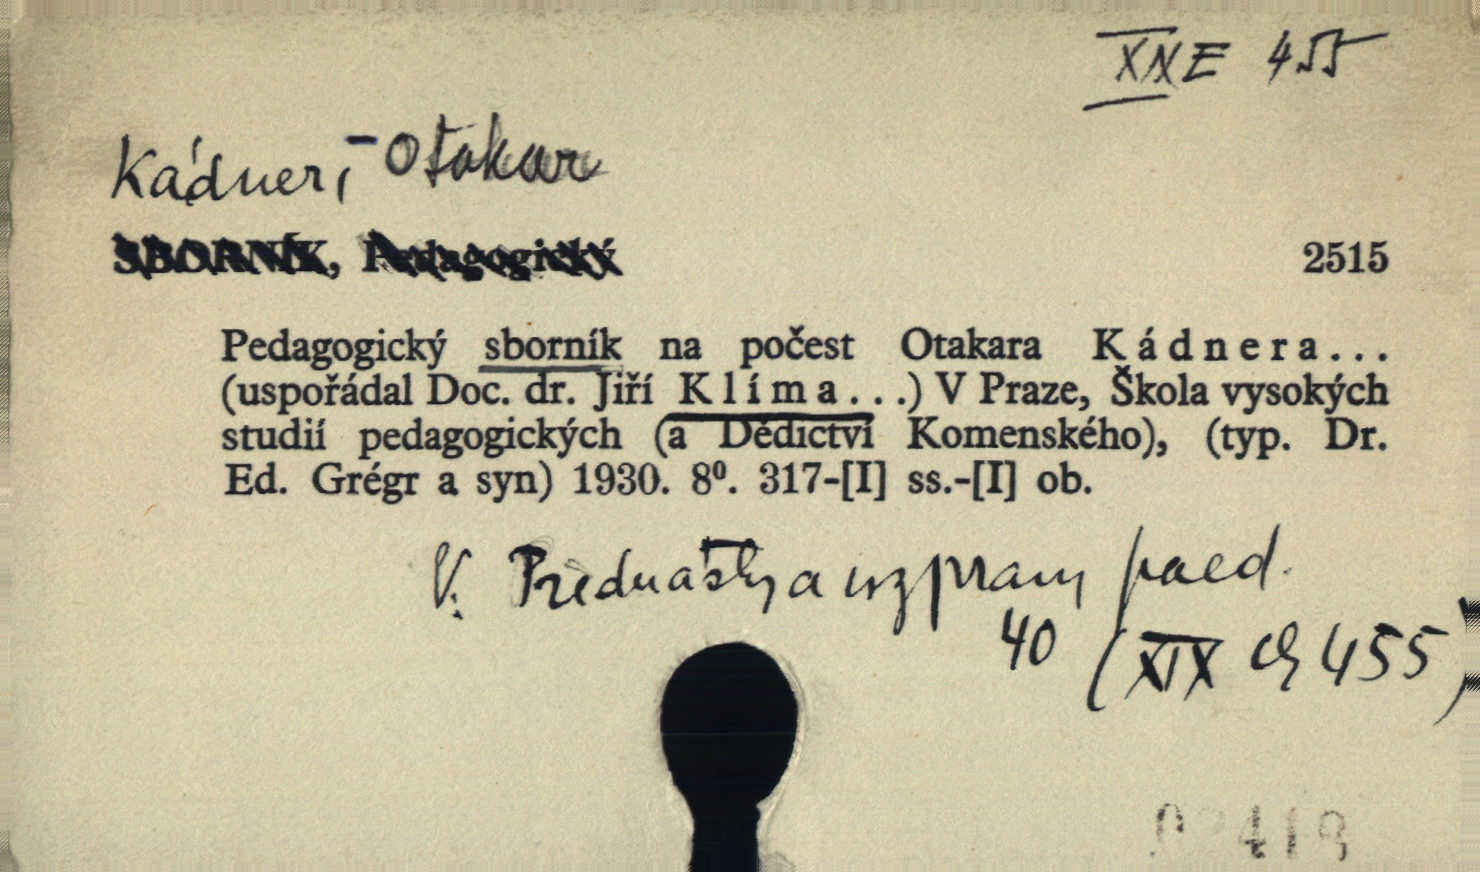 XIX E 455
Kádner, - Otakar
SBORNÍK, Pedagogický 2515
Pedagogický sborník na počest Otakara Kádnera...
(uspořádal Doc. dr. Jiří Klíma...) V Praze, Škola vysokých
studií pedagogických (a Dědictví Komenského), (typ. Dr.
Ed. Grégr a syn) 1930. 8⁰. 317-[I] ss.-[I] ob.
V. Přednášky a rozpravy paed.
40 (XIX 455)